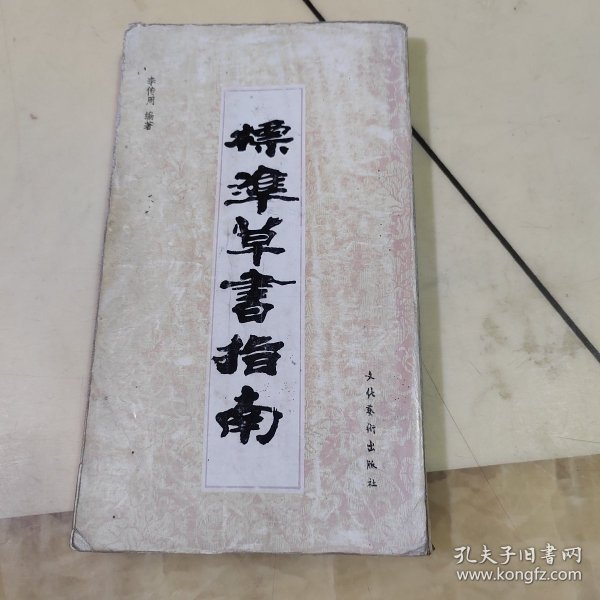 李传周 编著
標準草書指南
文化藝術出版社
孔夫子旧书网
www.kongfz.com